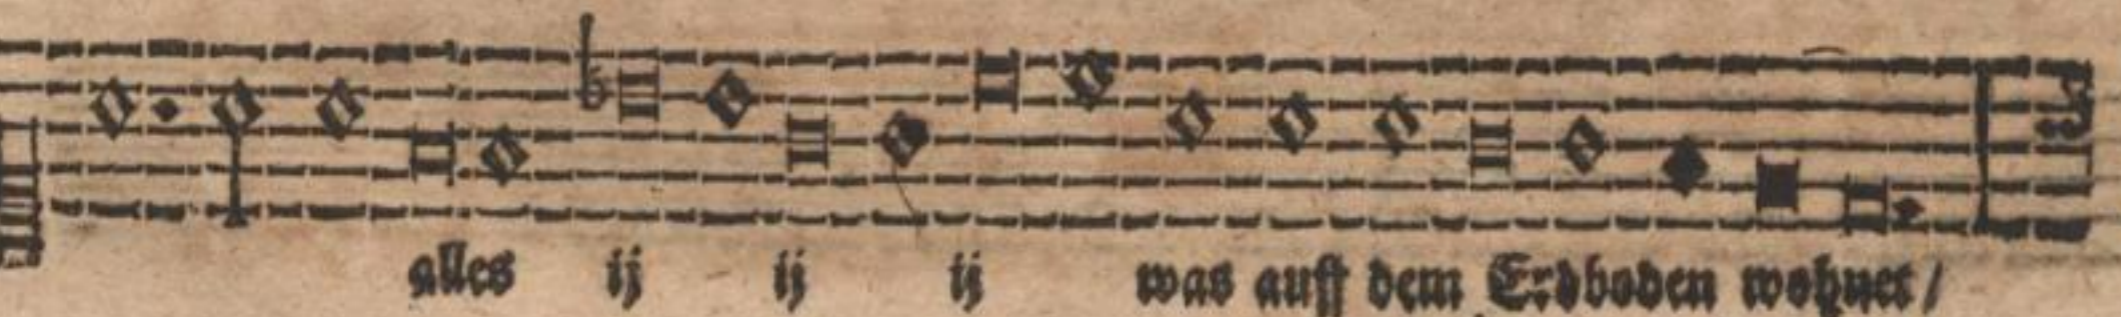 alles ij ij ij was auff dem Erdboden wohnet /